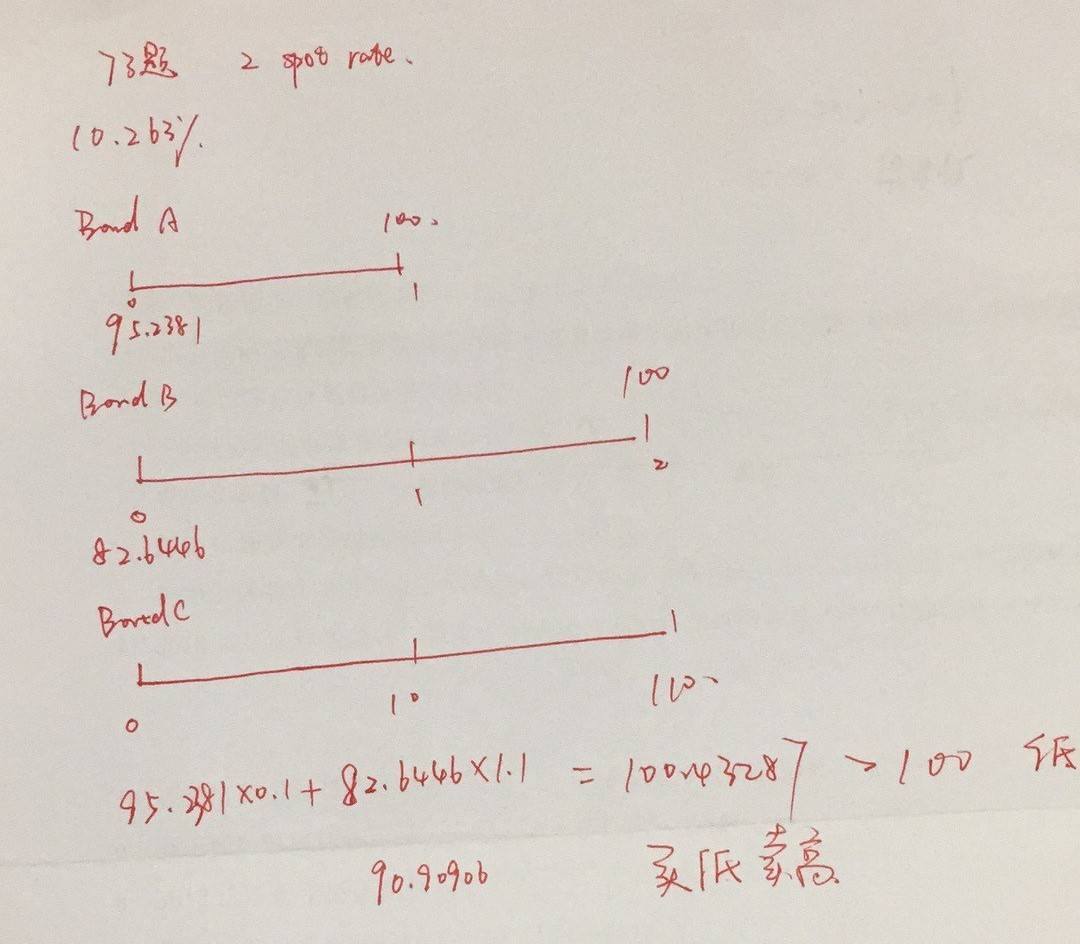 73题 2 spot rate.
10.263%.
Bond A 100.
0 1
95.2381
Bond B 100
0 1 2
82.6446
Bond C
0 10 110.
95.2381×0.1+82.6446×1.1 = 100.43287 > 100 低
90.90906 买低卖高